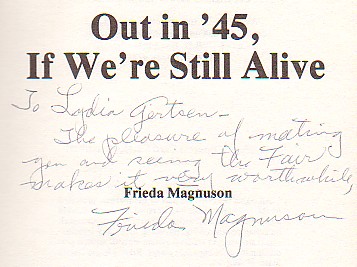 Out in '45,
If We're Still Alive
To Lydia Gertsen-
The pleasure of meeting
you and seeing the Fair
makes it very worthwhile,
Frieda Magnuson
Frieda Magnuson